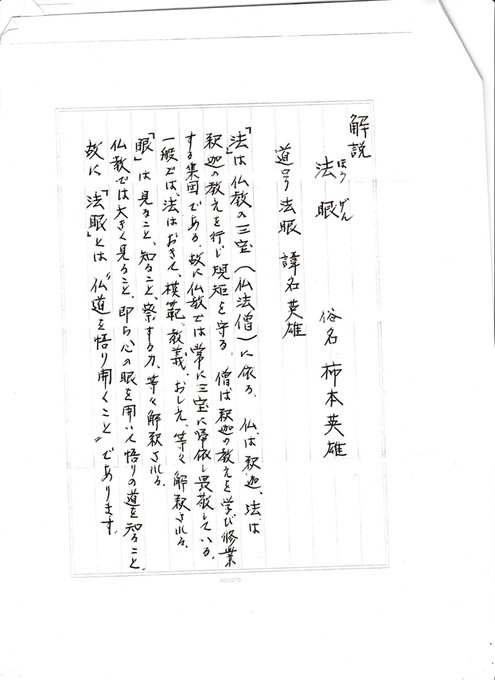 解説
法眼 俗名 柿本英雄
ほう げん
道号 法眼 諱名 英雄
「法」は仏教の三宝(仏法僧)に依る。 仏は釈迦、法は
釈迦の教えを行じ規矩を守る。 僧は釈迦の教えを学び修業
する集団である。故に仏教では常に三宝に帰依し畏敬している。
一般では、法はおきて、模範、教義、おしえ、等々解釈される。
「眼」は見ること、知ること、察する力、等々解釈される。
仏教では大きく見ること、即ち心の眼を用いて悟りの道を知ること、
故に「法眼」とは“仏道を悟り開くこと”であります。